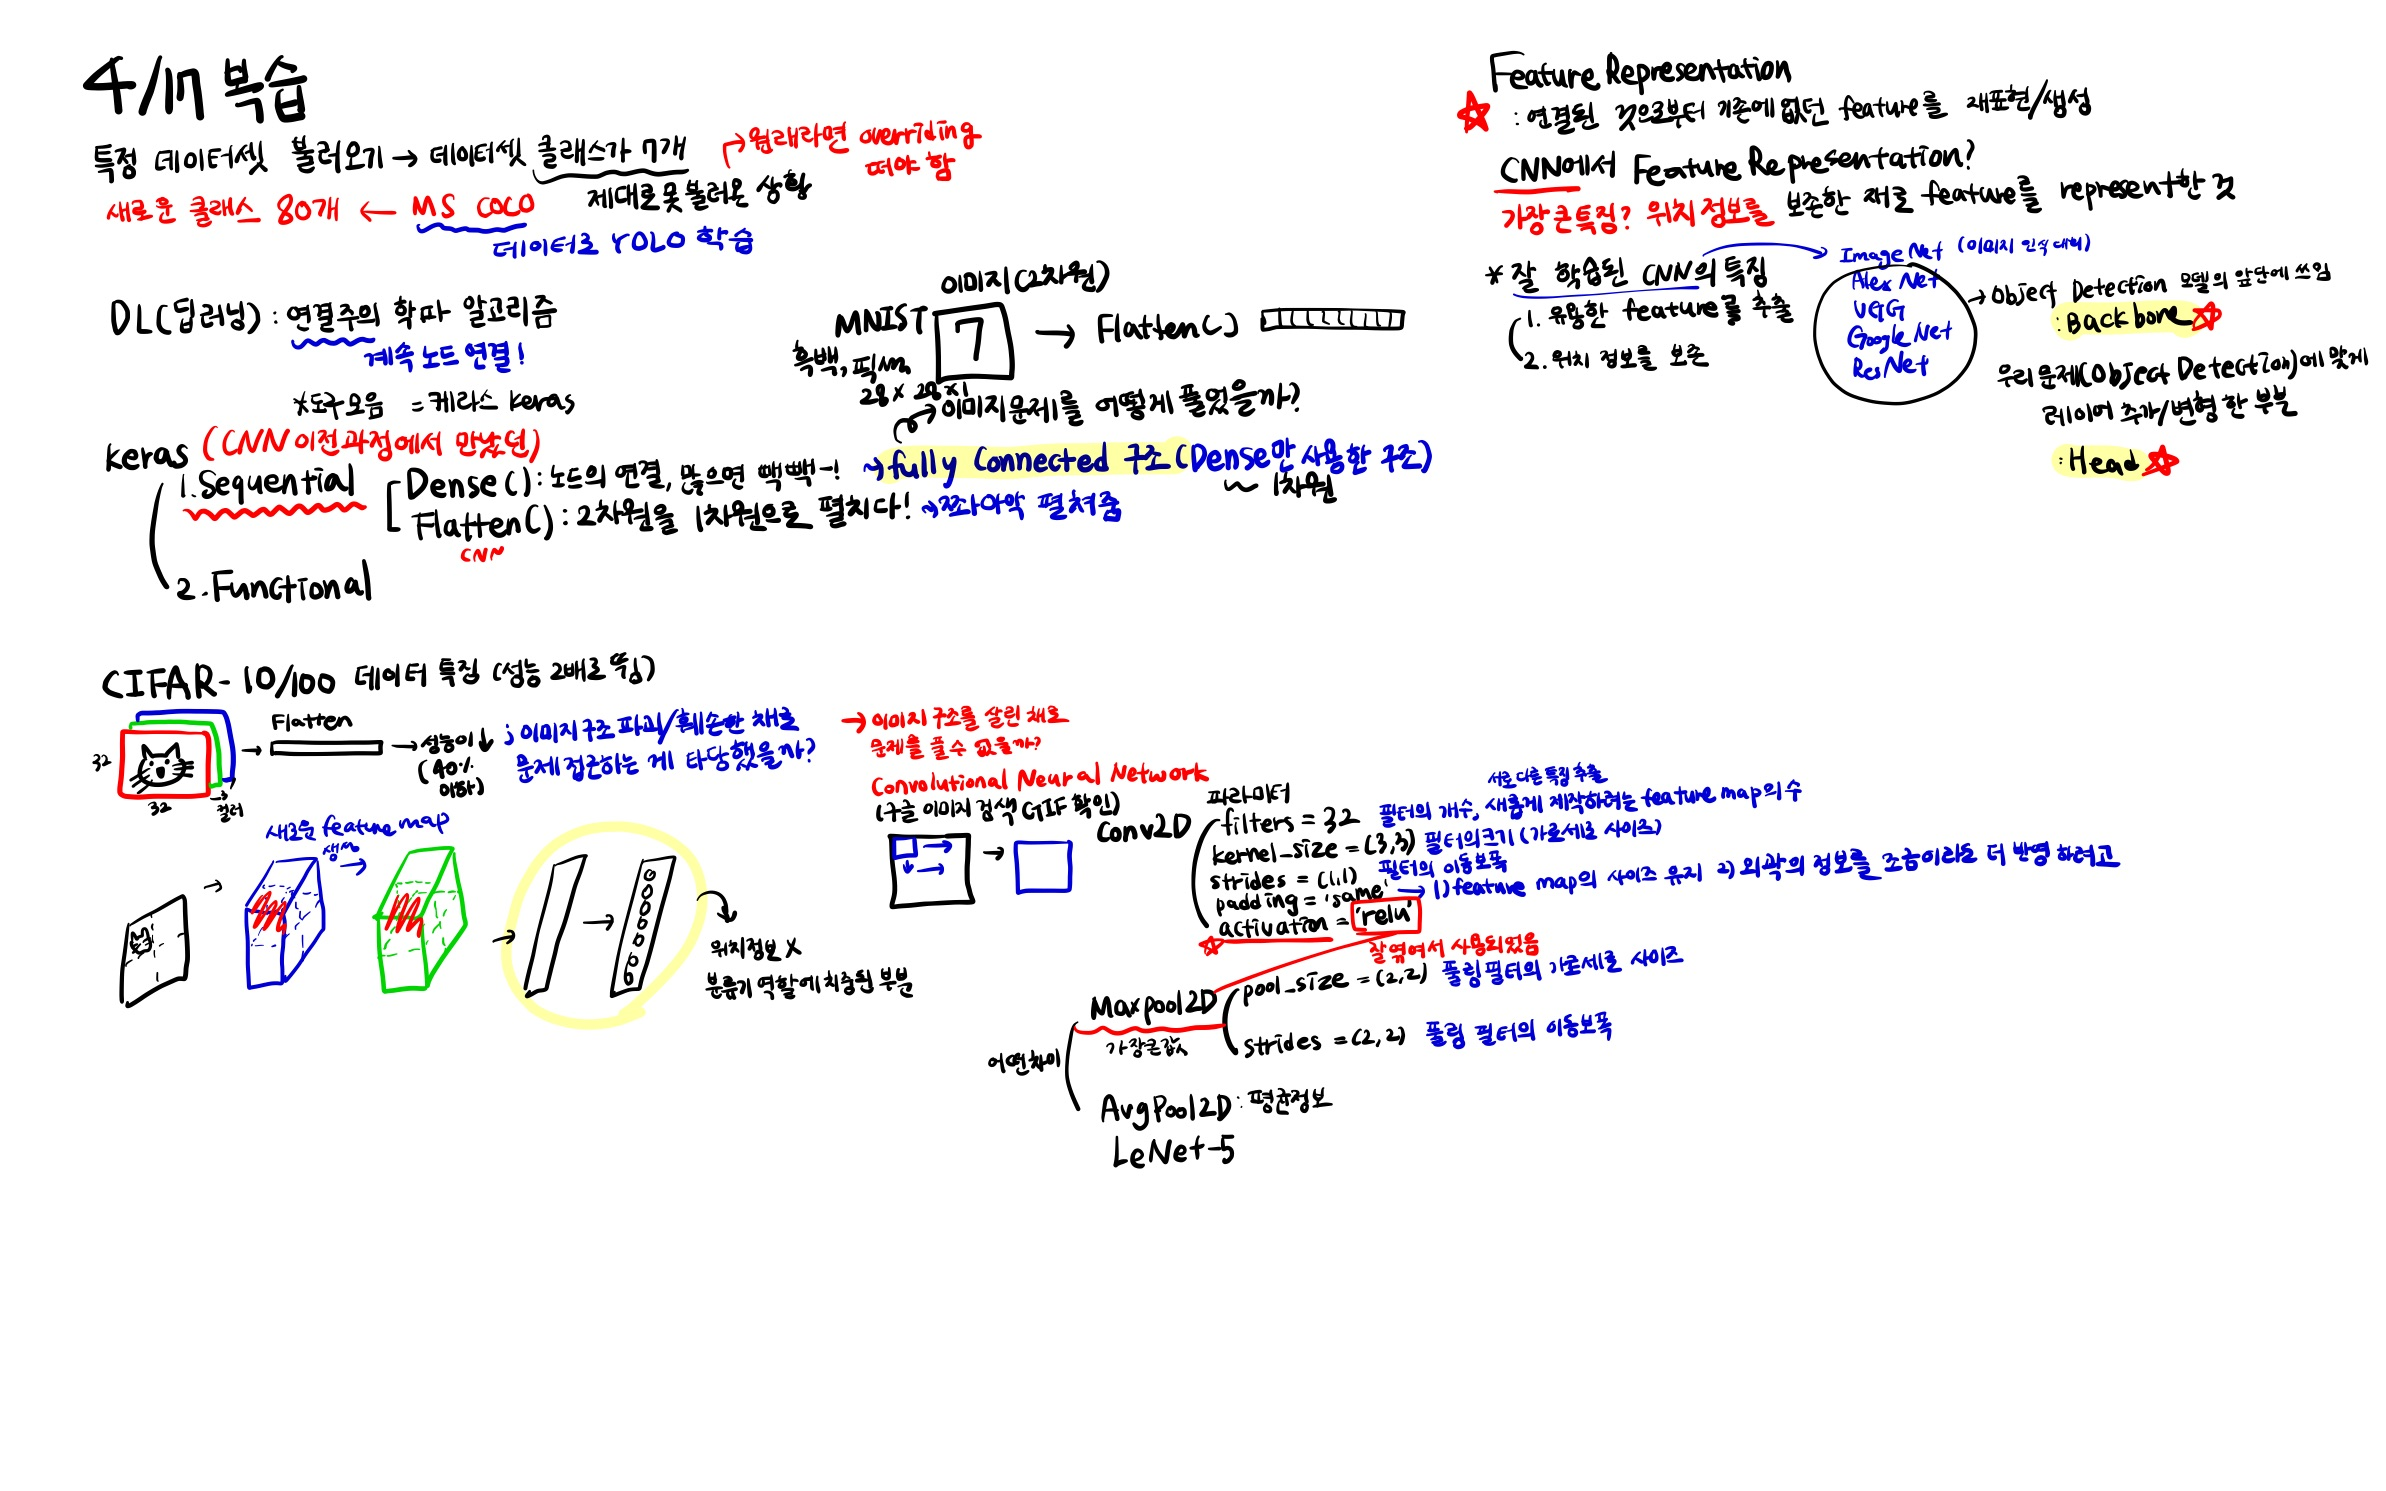 4/17 복습
특정 데이터셋 불러오기 → 데이터셋 클래스가 7개
→ 원래라면 overriding
떠야 함
제대로 못 불러온 상황
새로운 클래스 80개 ← MS COCO
데이터로 YOLO 학습
DL(딥러닝) : 연결주의 학파 알고리즘
계속 노드 연결!
*도구모음 = 케라스 keras
keras (CNN 이전과정에서 만났던)
1. Sequential
Dense() : 노드의 연결, 많으면 빽빽-!
Flatten() : 2차원을 1차원으로 펼치다! → 쫘아악 펼쳐줌
CNN
2. Functional
이미지(2차원)
MNIST 7 → Flatten()
흑백, 픽셀
28 x 28 x 1
→ 이미지문제를 어떻게 풀었을까?
→ fully Connected 구조 (Dense만 사용한 구조)
1차원
Feature Representation
: 연결된 것으로부터 기존에 없던 feature를 재표현/생성
CNN에서 Feature Representation?
가장 큰 특징? 위치정보를 보존한 채로 feature를 represent한 것
* 잘 학습된 CNN의 특징
1. 유용한 feature를 추출
2. 위치 정보를 보존
ImageNet (이미지 인식 대회)
Alex Net
VGG
Google Net
ResNet
→ Object Detection 모델의 앞단에 쓰임
: Backbone
우리 문제(Object Detection)에 맞게
레이어 추가/변형한 부분
: Head
CIFAR-10/100 데이터 특징 (성능 2배로 뜀)
32
32
컬러
Flatten
→ 성능이 ↓
(40%
이하)
; 이미지구조 파괴/훼손한 채로
문제 접근하는 게 타당했을까?
→ 이미지 구조를 살린 채로
문제를 풀 수 없을까?
Convolutional Neural Network
(구글 이미지 검색 GIF 확인)
새로운 feature map
생성
위치정보 X
분류기 역할에 치중된 부분
Conv2D
파라미터
filters = 32 필터의 개수, 새롭게 제작하려는 feature map의 수
서로 다른 특징 추출
kernel_size = (3,3) 필터의 크기 (가로세로 사이즈)
strides = (1,1) 필터의 이동보폭
padding = 'same' → 1) feature map의 사이즈 유지 2) 외곽의 정보를 조금이라도 더 반영하려고
activation = 'relu'
잘 엮여서 사용되었음
어떤차이
Maxpool2D
가장큰값
pool_size = (2,2) 풀링필터의 가로세로 사이즈
strides = (2,2) 풀링 필터의 이동보폭
AvgPool2D : 평균정보
LeNet-5